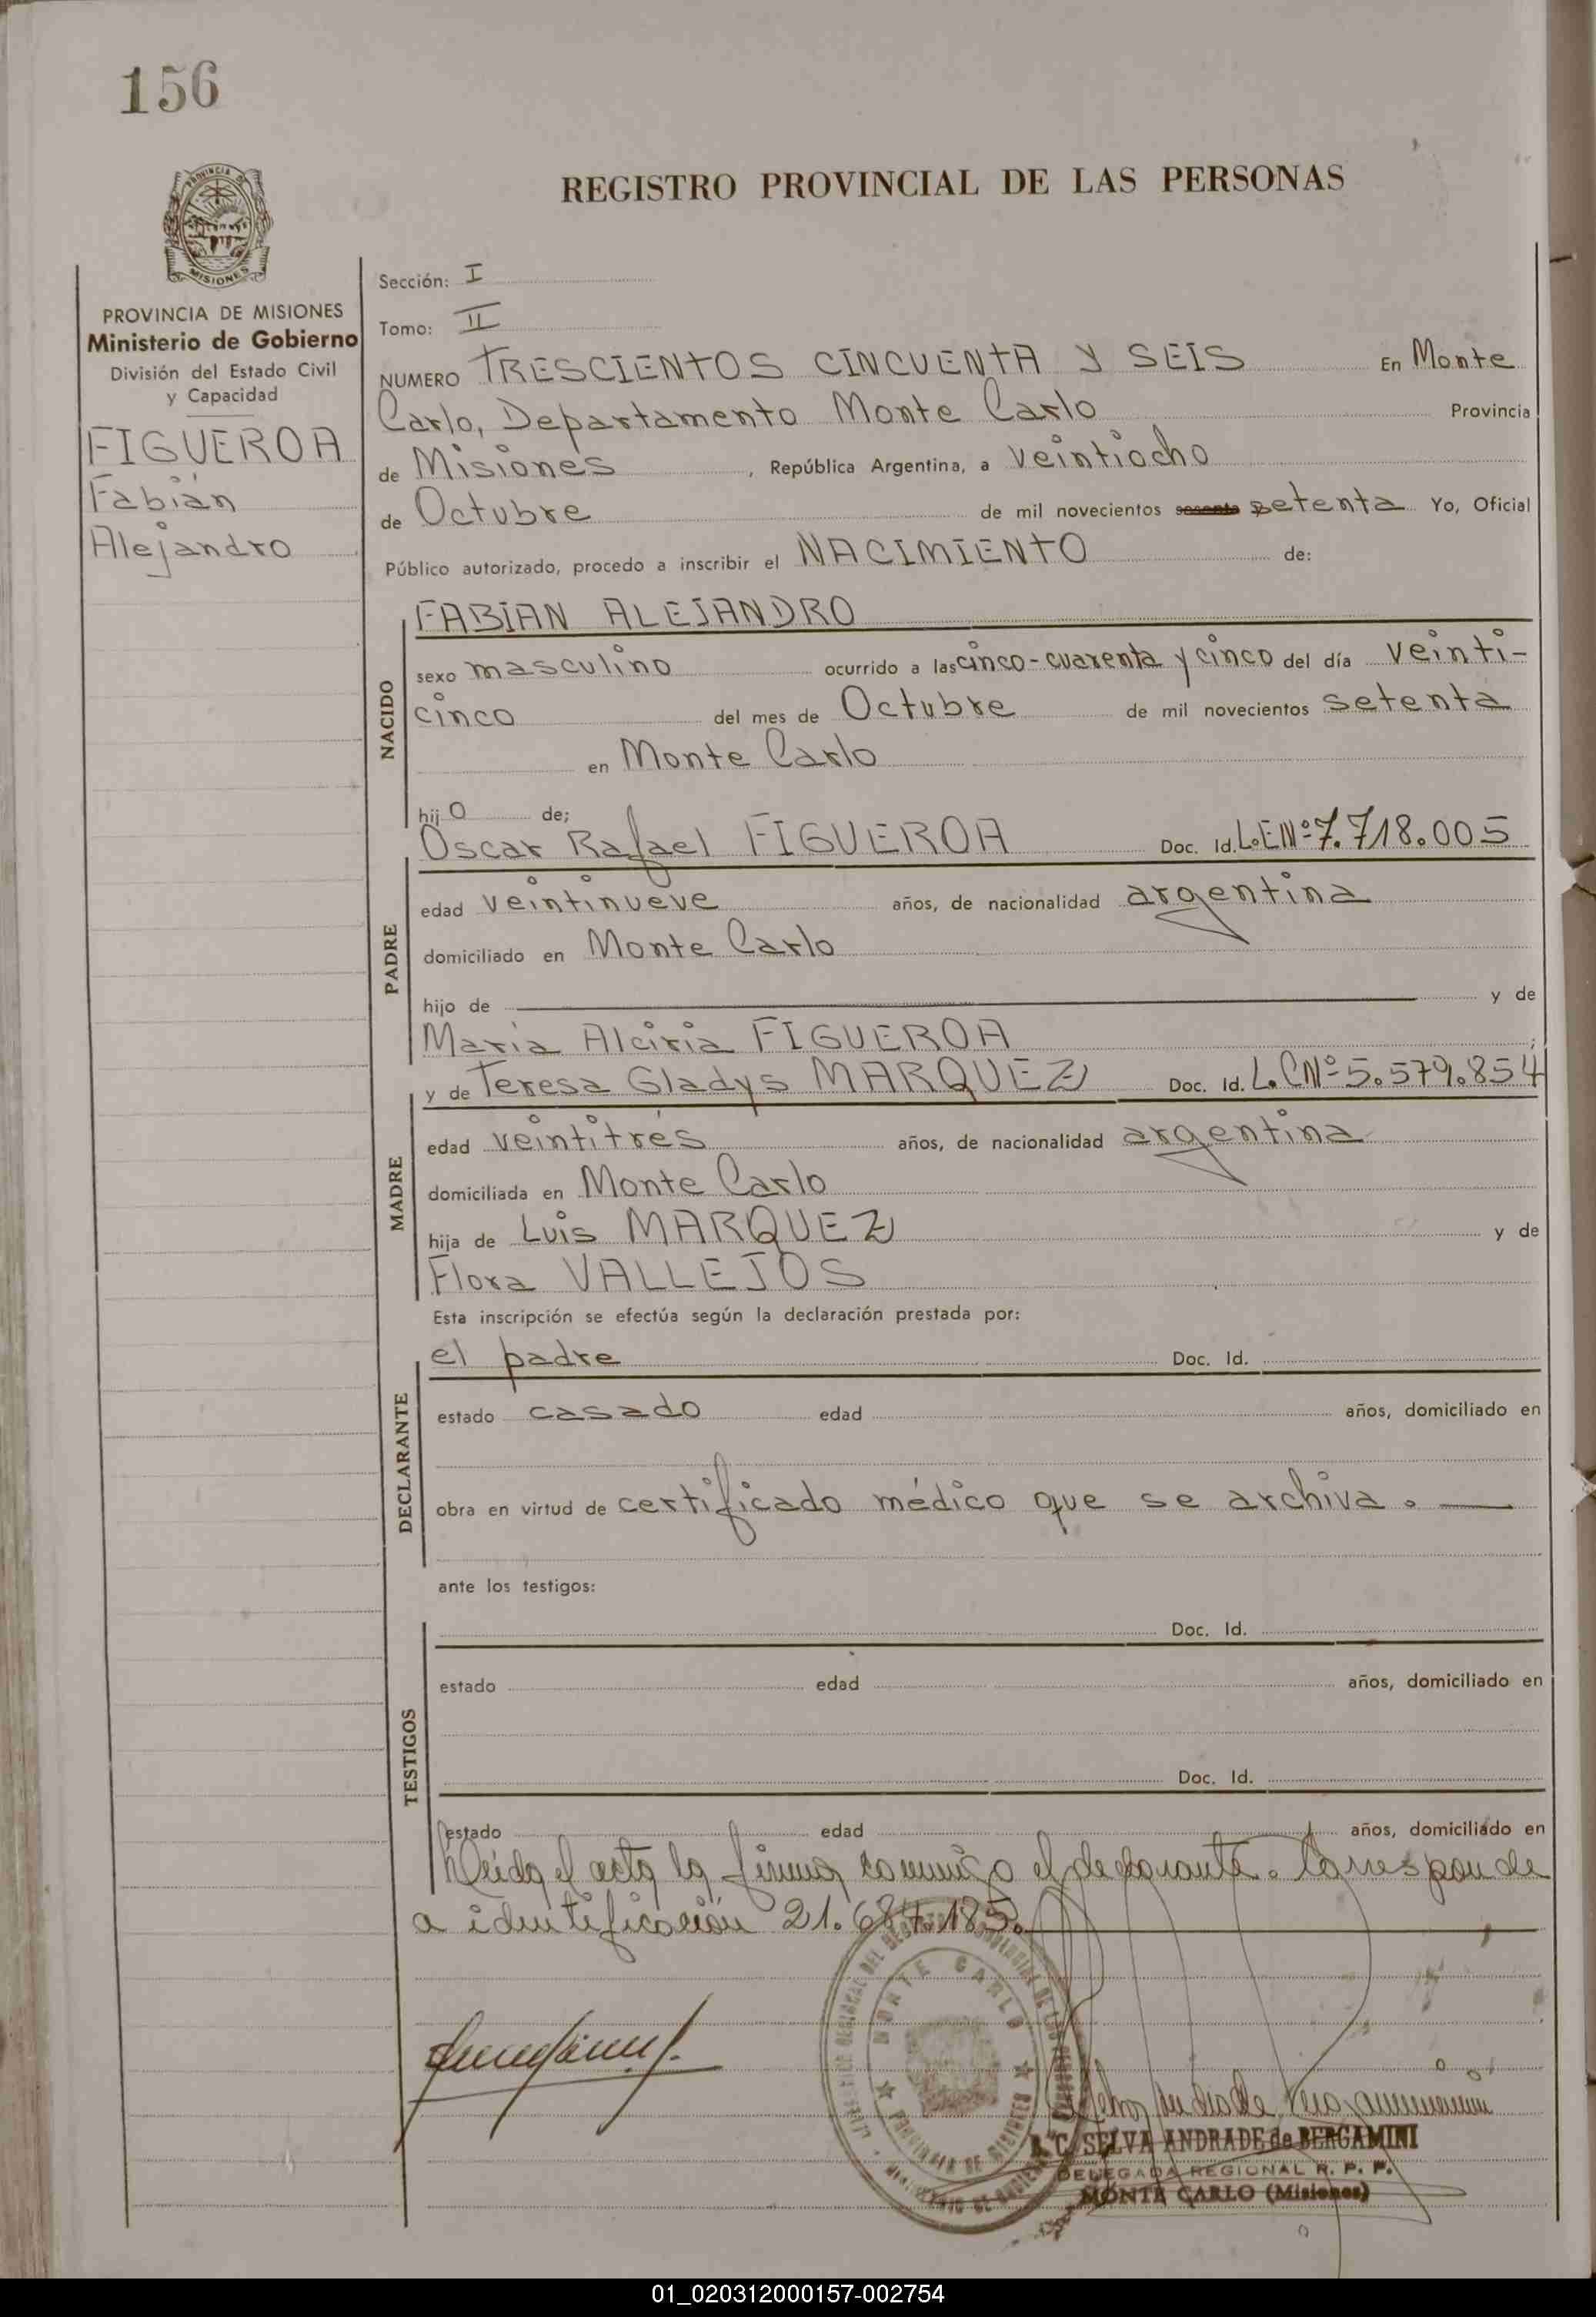 156
REGISTRO PROVINCIAL DE LAS PERSONAS
PROVINCIA DE
MISIONES
PROVINCIA DE MISIONES
Ministerio de Gobierno
División del Estado Civil
y Capacidad
FIGUEROA
Fabián
Alejandro
Sección: I
Tomo: II
NUMERO TRESCIENTOS CINCUENTA Y SEIS En Monte
Carlo, Departamento Monte Carlo Provincia
de Misiones, República Argentina, a veintiocho
de Octubre de mil novecientos sesenta setenta Yo, Oficial
Público autorizado, procedo a inscribir el NACIMIENTO de:
NACIDO
FABIAN ALEJANDRO
sexo masculino ocurrido a las cinco-cuarenta y cinco del día veinti-
cinco del mes de Octubre de mil novecientos setenta
en Monte Carlo
hijo de;
PADRE
Oscar Rafael FIGUEROA Doc. Id. L.E Nº 7.718.005
edad veintinueve años, de nacionalidad argentina
domiciliado en Monte Carlo
hijo de y de
María Alciria FIGUEROA ;
MADRE
y de Teresa Gladys MARQUEZ Doc. Id. L.C Nº 5.579.854
edad veintitrés años, de nacionalidad argentina
domiciliada en Monte Carlo
hija de Luis MARQUEZ y de
Flora VALLEJOS
Esta inscripción se efectúa según la declaración prestada por:
DECLARANTE
el padre Doc. Id.
estado casado edad años, domiciliado en
obra en virtud de certificado médico que se archiva.
ante los testigos:
TESTIGOS
Doc. Id.
estado edad años, domiciliado en
Doc. Id.
estado edad años, domiciliado en
Leída el acta la firma conmigo el declarante. Corresponde
a identificación 21.684.185.
MONTE CARLO
PROVINCIA DE MISIONES
C. SELVA ANDRADE de BERGAMINI
DELEGADA REGIONAL R. P. P.
MONTE CARLO (Misiones)
01_020312000157-002754